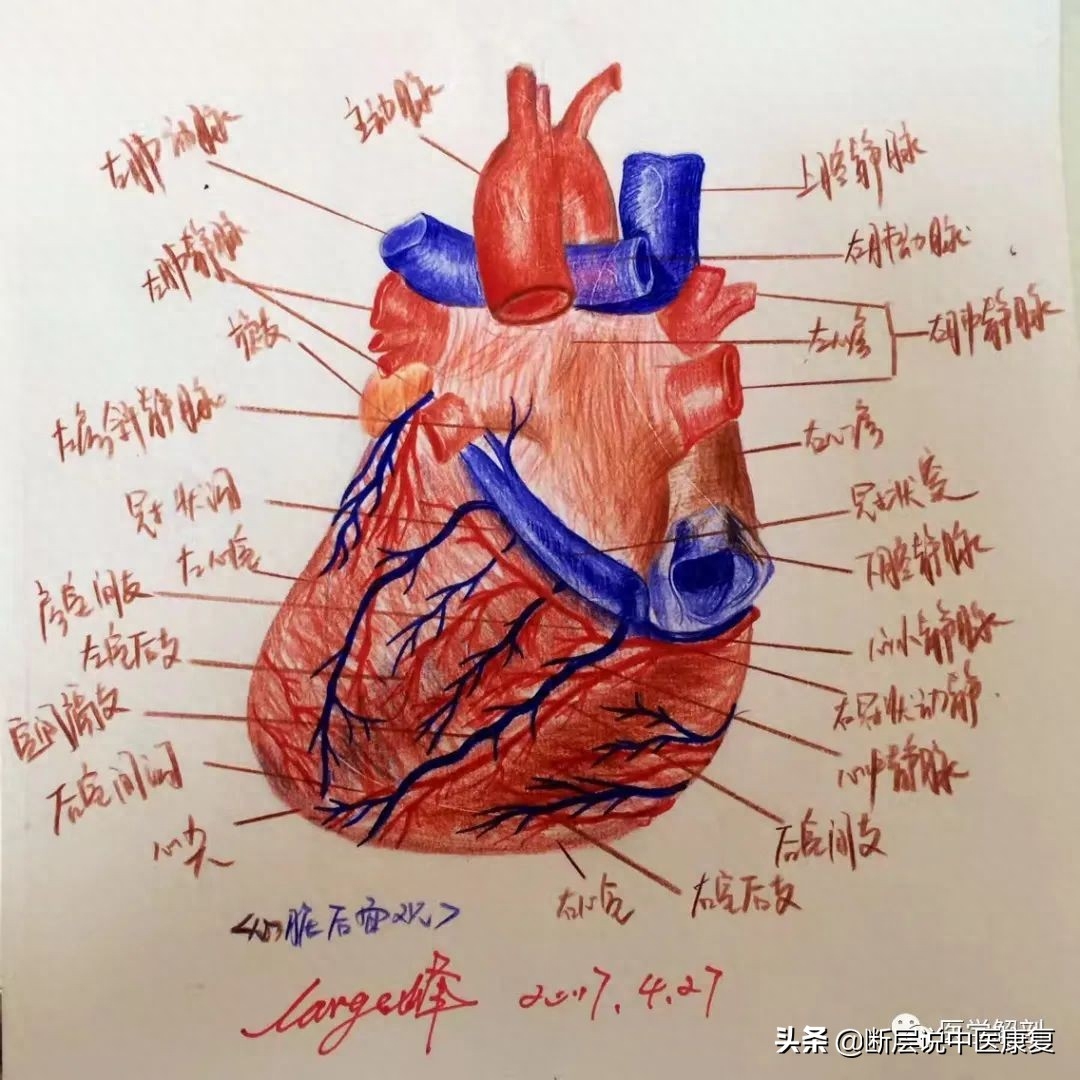 主动脉
左肺动脉
上腔静脉
左肺静脉
右肺静脉
左心房
左房斜静脉
右心房
冠状沟
冠状窦
左心室
下腔静脉
房室间支
心小静脉
左室后支
室间隔支
心中静脉
后室间沟
后室间支
心尖
右心室
右室后支
<心脏后面观>
large峰 2017.4.27
医学解剖
头条 @断层说中医康复